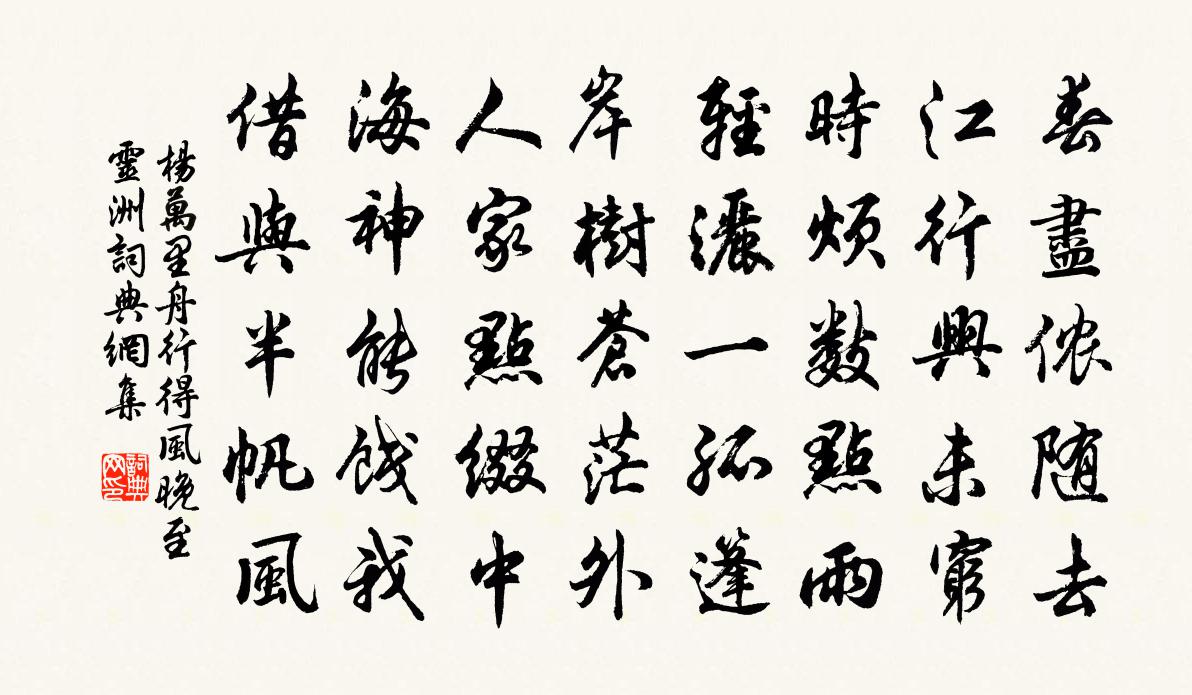 春盡侬随去
江行興未窮
時煩數點雨
輕灑一孤蓬
岸樹蒼茫外
人家點綴中
海神能饯我
借與半帆風
楊萬里舟行得風晚至
靈洲詞典網集
詞典网印